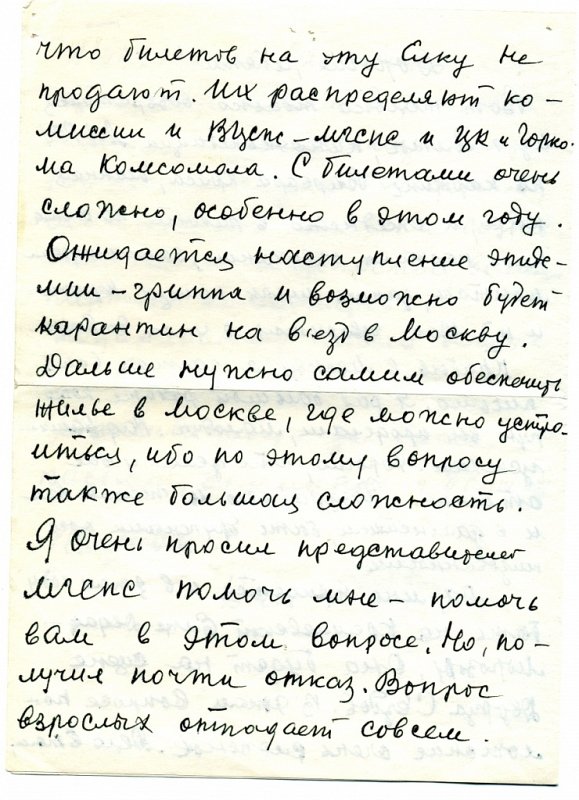 что билетов на эту Ёлку не
продают. Их распределяют ко-
миссии и ВЦСПС – МГСПС и ЦК и Горко-
ма Комсомола. С билетами очень
сложно, особенно в этом году.
Ожидается наступление эпиде-
мии – гриппа и возможно будет
карантин на в'езд в Москву.
Дальше нужно самим обеспечить
жилье в Москве, где можно устро-
иться, ибо по этому вопросу
также большая сложность.
Я очень просил представителей
МГСПС помочь мне – помочь
вам в этом вопросе. Но, по-
лучил почти отказ. Вопрос
взрослых отпадает совсем.